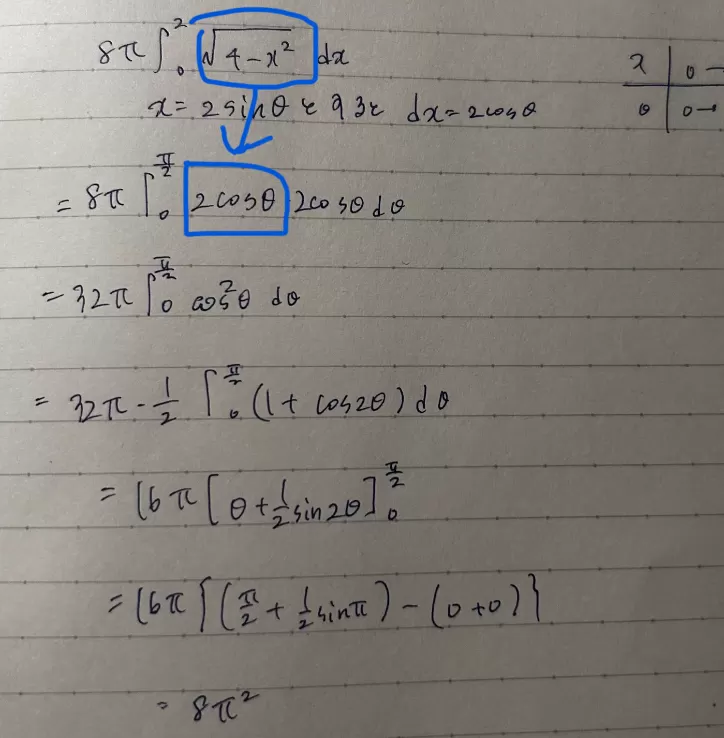 8π∫₀² √(4-x²) dx
x | 0→
x = 2sinθ とすると dx = 2cosθ
θ | 0→
= 8π∫₀^{π/2} 2cosθ・2cosθ dθ
= 32π∫₀^{π/2} cos²θ dθ
= 32π・1/2 ∫₀^{π/2} (1 + cos2θ) dθ
= 16π[θ + 1/2 sin2θ]₀^{π/2}
= 16π{(π/2 + 1/2 sinπ) - (0+0)}
= 8π²